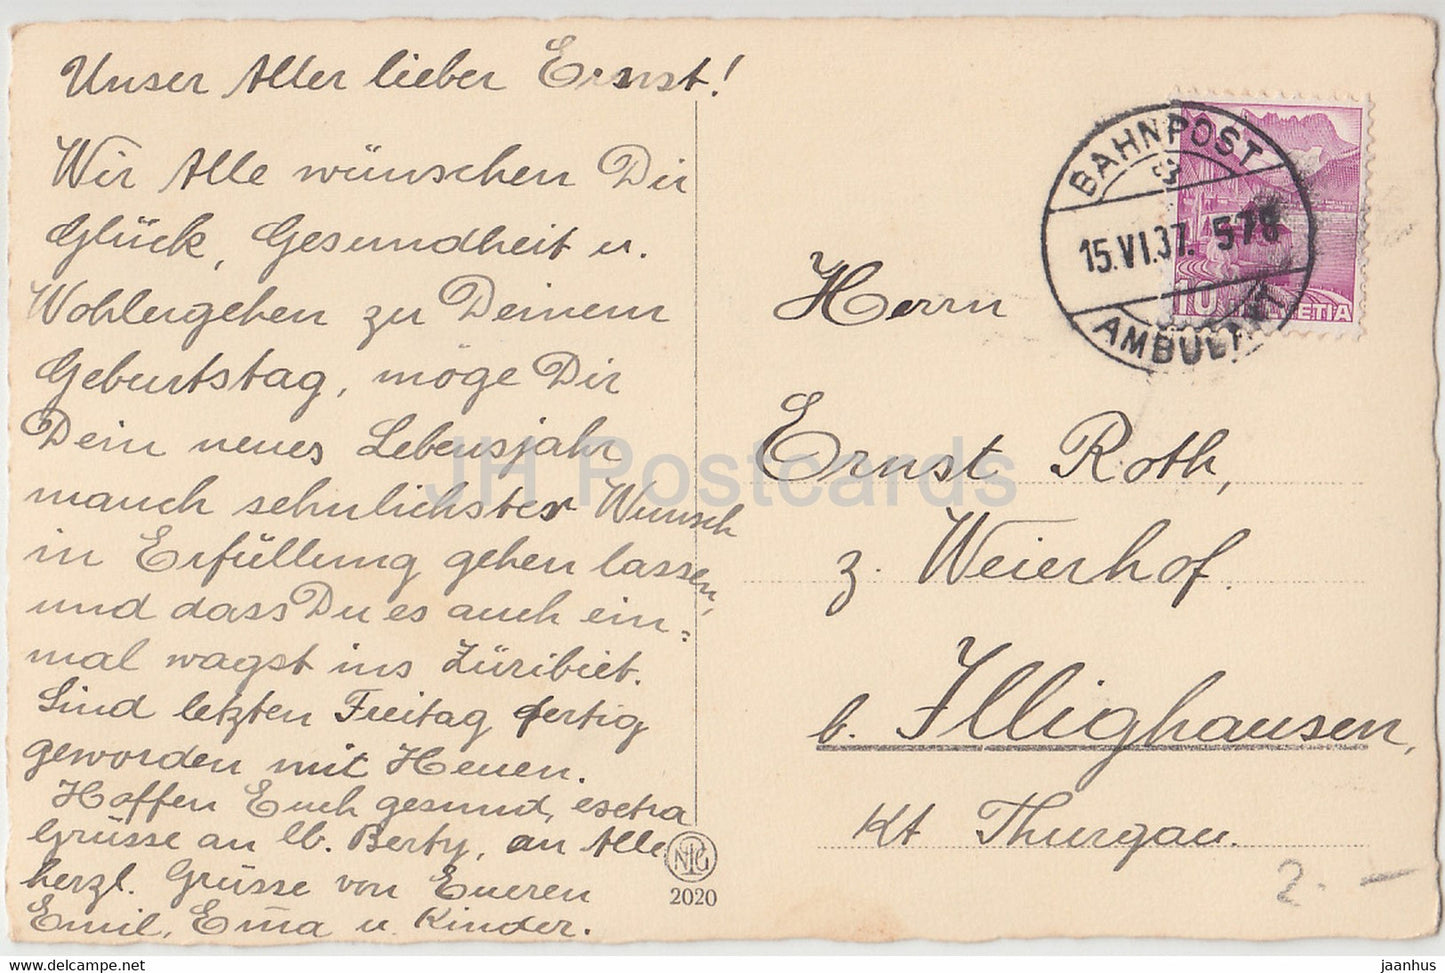 Unser Aller lieber Ernst!
Wir Alle wünschen Dir
Glück, Gesundheit u.
Wohlergehen zu Deinem
Geburtstag, möge Dir
Dein neues Lebensjahr
manch sehnlichster Wunsch
in Erfüllung gehen lassen,
und dass Du es auch ein=
mal wagst ins Züribiet.
Sind letzten Freitag fertig
geworden mit Heuen.
Hoffen Euch gesund, extra
Grüsse an lb. Berty, an Alle
herzl. Grüsse von Eueren
Emil, Em̄a u. Kinder.
BAHNPOST
15.VI.37. 578
AMBULANT
10 HELVETIA
Herrn
Ernst Roth,
z. Weierhof.
b. Illighausen,
Kt Thurgau.
2.-
NPG
2020
JH Postcards
https://jhpostcards.com
jaanhus